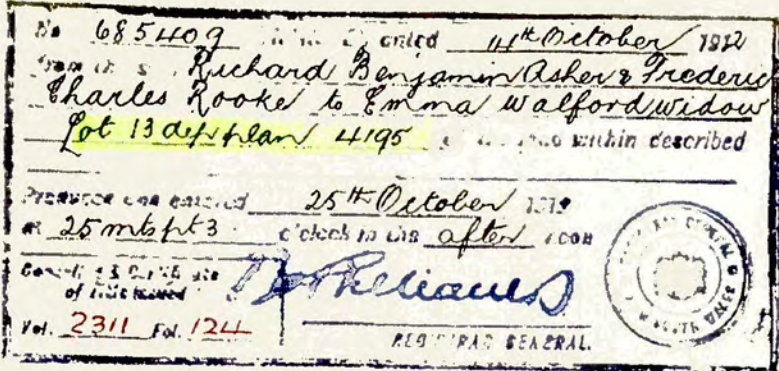 No 685409 dated 14th October 1912
from the Richard Benjamin Asher & Frederic
Charles Rooke to Emma Walford widow
Lot 13 dep plan 4195 of the land within described
Produced and entered 25th October 1912
at 25 mts pt 3 o'clock in the after noon
Cancelled & Certificate
of Title issued
Vol. 2311 Fol. 124
REGISTRAR GENERAL.